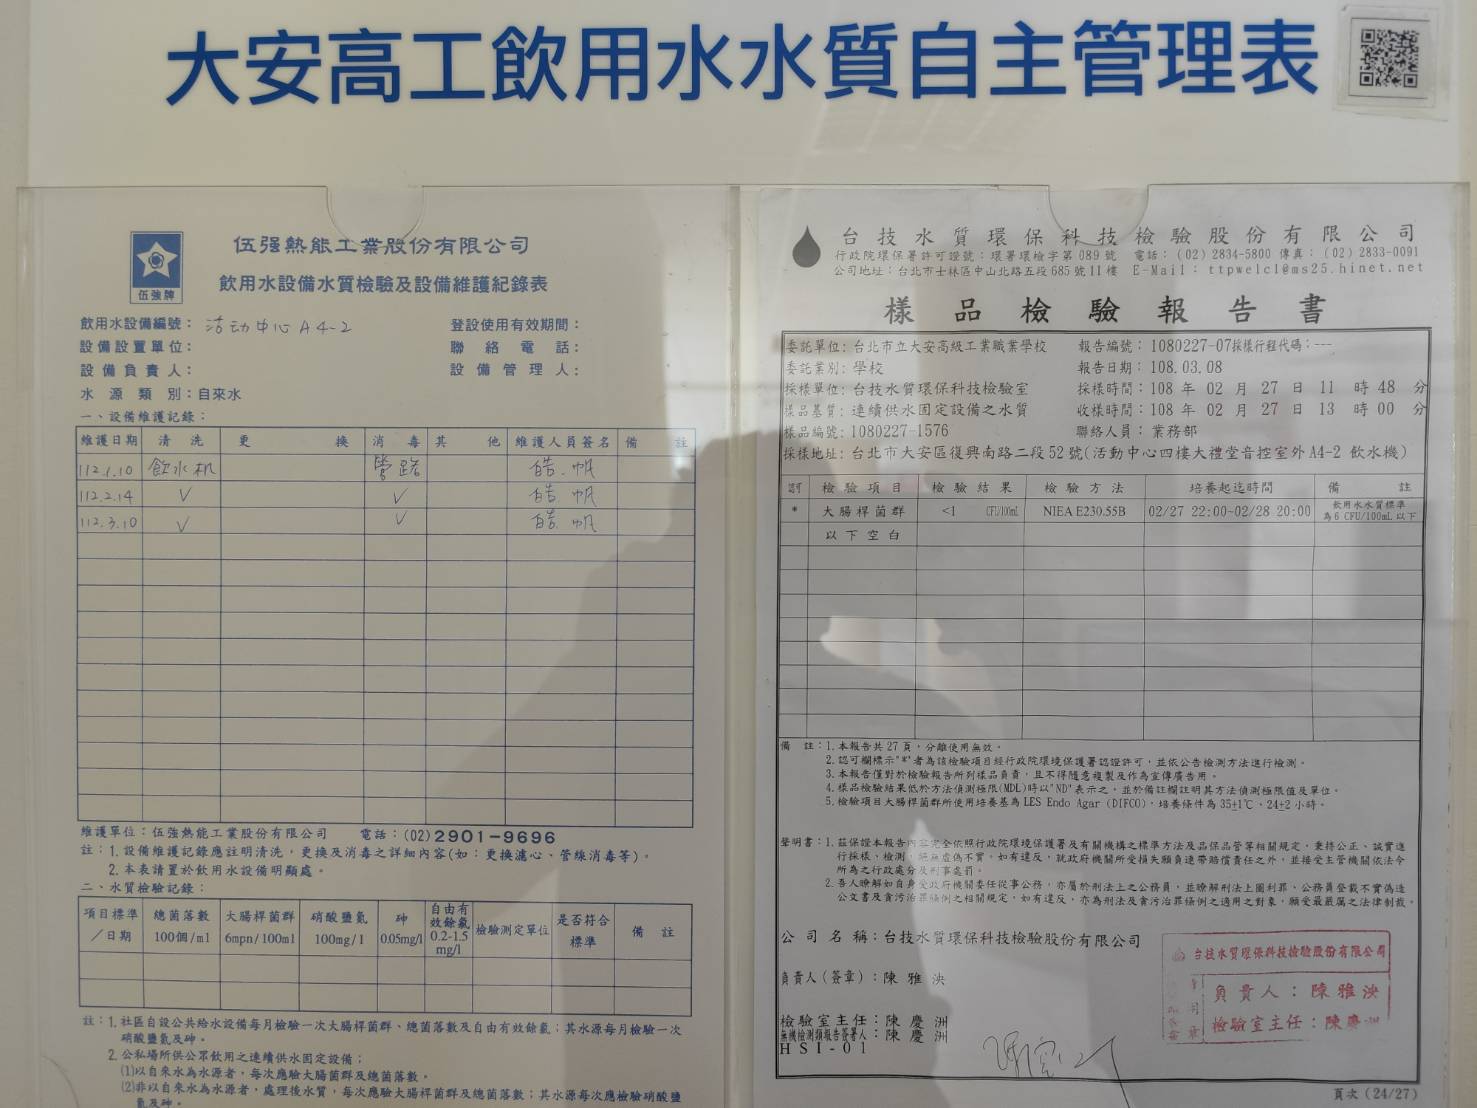 大安高工飲用水水質自主管理表
伍強牌
伍强熱能工業股份有限公司
飲用水設備水質檢驗及設備維護紀錄表
飲用水設備編號：活动中心 A4-2
登設使用有效期間：
設備設置單位：
聯絡電話：
設備負責人：
設備管理人：
水源類別：自來水
一、設備維護記錄：
維護日期 清洗 更換 消毒 其他 維護人員簽名 備註
112.1.10 飲水机 管路 皓.帆
112.2.14 V V 皓.帆
112.3.10 V V 皓.帆
維護單位：伍強熱能工業股份有限公司 電話：(02)2901-9696
註：1.設備維護記錄應註明清洗，更換及消毒之詳細內容(如：更換濾心、管線消毒等)。
2.本表請置於飲用水設備明顯處。
二、水質檢驗記錄：
項目標準／日期 總菌落數 100個/ml 大腸桿菌群 6mpn/100ml 硝酸鹽氮 100mg/l 砷 0.05mg/l 自由有效餘氯 0.2-1.5 mg/l 檢驗測定單位 是否符合標準 備註
註：1.社區自設公共給水設備每月檢驗一次大腸桿菌群、總菌落數及自由有效餘氯；其水源每月檢驗一次
硝酸鹽氮及砷。
2.公私場所供公眾飲用之連續供水固定設備；
(1)以自來水為水源者，每次應驗大腸桿菌群及總菌落數。
(2)非以自來水為水源者，處理後水質，每次應驗大腸桿菌群及總菌落數；其水源每次應檢驗硝酸鹽
氮及砷。
台技水質環保科技檢驗股份有限公司
行政院環保署許可證號：環署環檢字第089號 電話：(02)2834-5800 傳真：(02)2833-0091
公司地址：台北市士林區中山北路五段685號11樓 E-Mail：ttpwelcl@ms25.hinet.net
樣品檢驗報告書
委託單位：台北市立大安高級工業職業學校 報告編號：1080227-07採樣行程代碼：---
委託業別：學校 報告日期：108.03.08
採樣單位：台技水質環保科技檢驗室 採樣時間：108 年 02 月 27 日 11 時 48 分
樣品基質：連續供水固定設備之水質 收樣時間：108 年 02 月 27 日 13 時 00 分
樣品編號：1080227-1576 聯絡人員：業務部
採樣地址：台北市大安區復興南路二段52號(活動中心四樓大禮堂音控室外A4-2 飲水機)
檢驗項目 檢驗結果 檢驗方法 培養起迄時間 備註
* 大腸桿菌群 <1 CFU/100mL NIEA E230.55B 02/27 22:00~02/28 20:00 飲用水水質標準為6 CFU/100mL以下
以下空白
備註：1.本報告共27頁，分離使用無效。
2.認可欄標示"*"者為該檢驗項目經行政院環境保護署認證許可，並依公告檢測方法進行檢測。
3.本報告僅對於檢驗報告所列樣品負責，且不得隨意複製及作為宣傳廣告用。
4.樣品檢驗結果低於方法偵測極限(MDL)時以"ND"表示之，並於備註欄註明其方法偵測極限值及單位。
5.檢驗項目大腸桿菌群所使用培養基為LES Endo Agar (DIFCO)，培養條件為35±1℃、24±2小時。
聲明書：1.茲保證本報告內容完全依照行政院環境保護署及有關機構之標準方法及品保品管等相關規定，秉持公正、誠實進
行採樣、檢測，絕無虛偽不實，如有違反，就政府機關所受損失願負連帶賠償責任之外，並接受主管機關依法令
所為之行政處分及刑事處罰。
2.吾人瞭解如自身受政府機關委任從事公務，亦屬於刑法上之公務員，並瞭解刑法上圖利罪、公務員登載不實偽造
公文書及貪污治罪條例之相關規定，如有違反，亦為刑法及貪污治罪條例之適用之對象，願受最嚴厲之法律制裁。
公司名稱：台技水質環保科技檢驗股份有限公司
負責人(簽章)：陳雅泱
檢驗室主任：陳慶洲
無機檢測類報告簽署人：陳慶洲
HSI-01
台技水質環保科技檢驗股份有限公司
負責人：陳雅泱
檢驗室主任：陳慶洲
頁次(24/27)